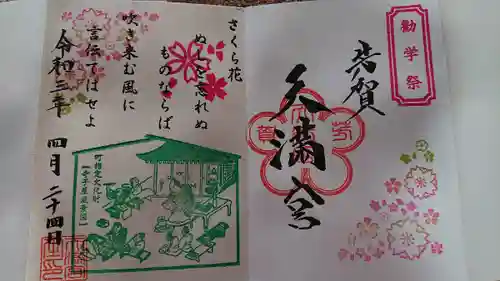 勧学祭
芳賀
天満宮
さくら花
ぬしを忘れぬ
ものならば
吹き来む風に
言伝てはせよ
令和三年 四月 二十四日
町指定文化財
「寺子屋風景図」